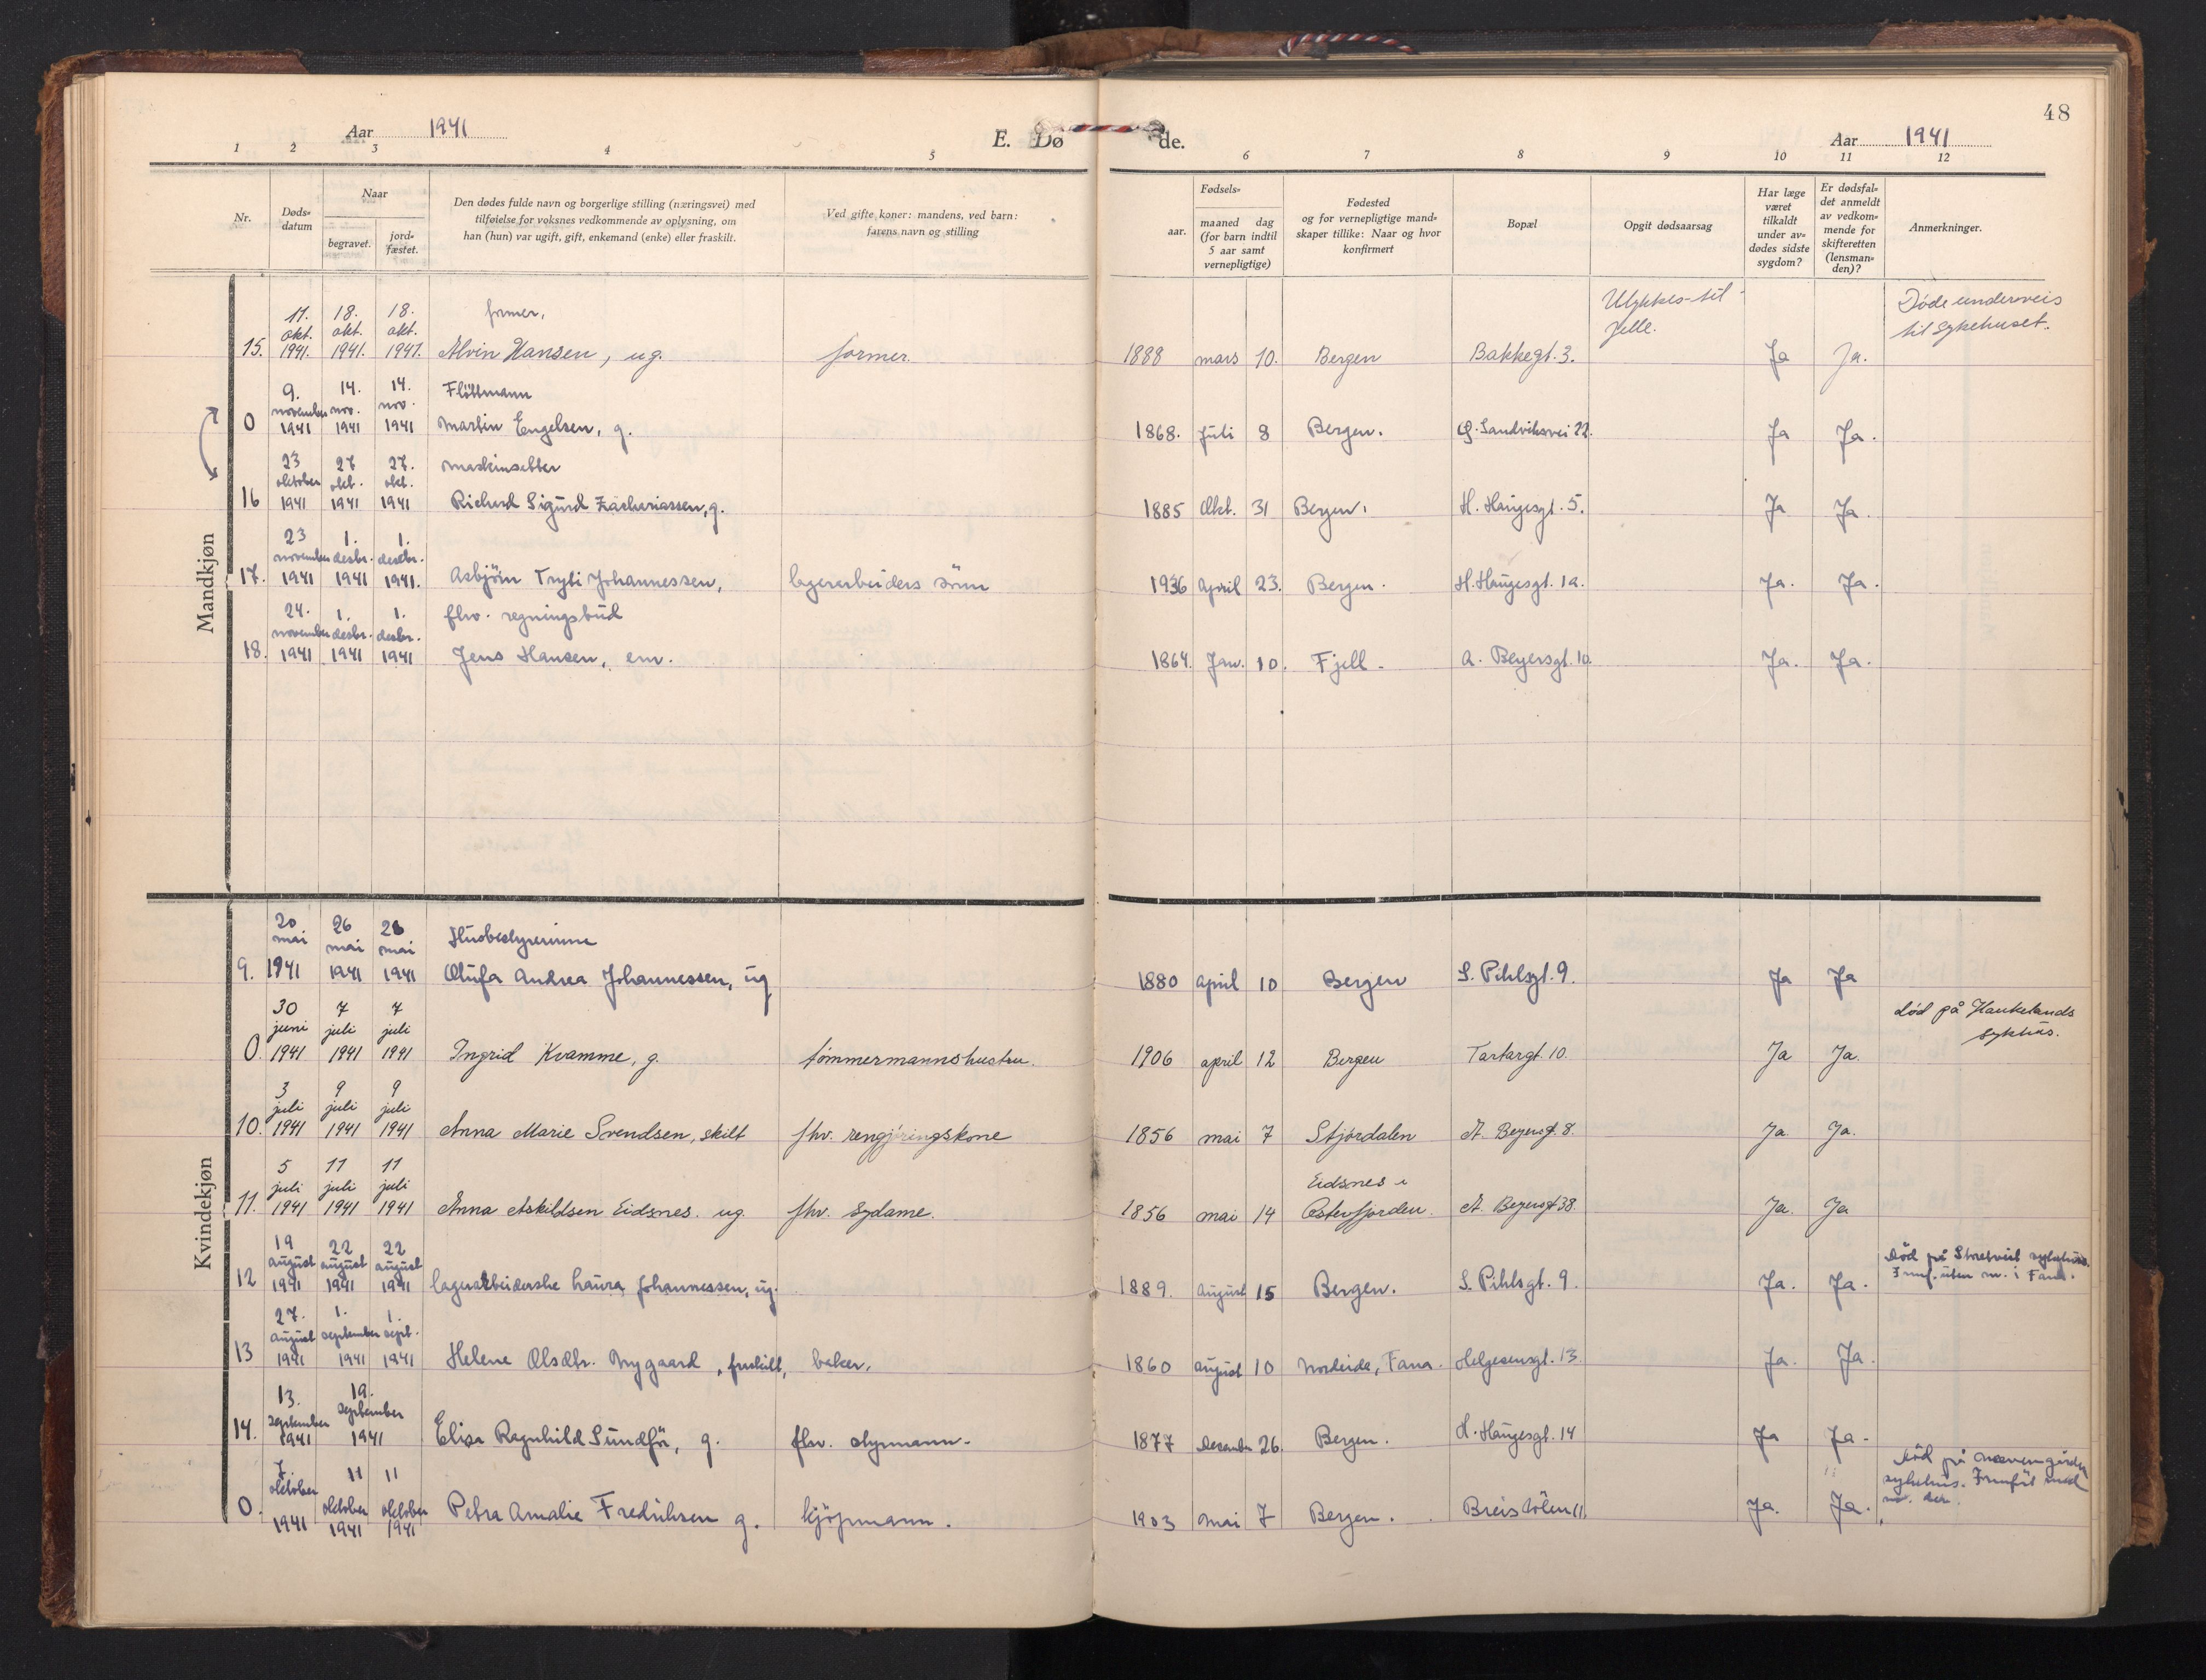 48
Aar 1941
E. Dø de.
Aar 1941
1 2 3 4 5 6 7 8 9 10 11 12
Nr.
Døds-
datum
Naar
begravet.
jord-
fæstet.
Den dødes fulde navn og borgerlige stilling (næringsvei) med
tilføielse for voksnes vedkommende av oplysning, om
han (hun) var ugift, gift, enkemand (enke) eller fraskilt.
Ved gifte koner: mandens, ved barn:
farens navn og stilling
Fødsels-
aar.
maaned dag
(for barn indtil
5 aar samt
vernepligtige)
Fødested
og for vernepligtige mand-
skaper tillike: Naar og hvor
konfirmert
Bopæl
Opgit dødsaarsag
Har læge
været
tilkaldt
under av-
dødes sidste
sygdom?
Er dødsfal-
det anmeldt
av vedkom-
mende for
skifteretten
(lensman-
den)?
Anmerkninger.
Mandkjøn
11. 18. 18. former, Ulykkes-til- Døde underveis
okt. okt. okt. felle. til Sykehuset.
15. 1941. 1941. 1941. Alvin Hansen, ug. former. 1888 mars 10. Bergen Bakkegt. 3. Ja Ja.
9. 14. 14. Fløttmann
november nov. nov.
0 1941 1941 1941 Martin Engelsen, g. 1868. Juli 8 Bergen. Sandviksvei 22. Ja Ja.
23 27 27. Maskinsetter
oktober okt. okt.
16 1941 1941 1941 Richard Sigurd Zachariassen, g. 1885 Okt. 31 Bergen. H. Haugesgt. 5. Ja Ja.
23 1. 1.
november desbr. desbr.
17. 1941 1941 1941. Asbjörn Tryti Johannessen, lagerarbeiders sönn 1936 April 23. Bergen. H. Haugesgt. 1a. Ja. Ja.
24. 1. 1. fhv. regningsbud
november desbr. desbr.
18. 1941 1941 1941 Jens Hansen, em. 1864. Jan. 10. Fjell. A. Beyersgt. 10. Ja. Ja.
Kvindekjøn
20 26 26 Husbestyrerinne
mai mai mai
9. 1941 1941 1941 Olufa Andrea Johannessen, ug 1880 april 10 Bergen S. Pihlsgt. 9. Ja Ja
30 7 7 død på Haukelands
juni juli juli sykhus.
0. 1941 1941 1941 Ingrid Kvamme, g. tømmermannshustru. 1906 april 12 Bergen Tartargt. 10. Ja Ja.
3 9 9
juli juli juli
10. 1941 1941 1941 Anna Marie Svendsen, skilt fhv. rengjøringskone 1856 mai 7 Stjørdalen A. Beyersgt. 8. Ja. Ja.
5 11 11 Eidsnes i
juli juli juli
11. 1941 1941 1941 Anna Askildsen Eidsnes. ug. fhv. Sydame. 1856 mai 14 Osterfjorden. A. Beyersgt 38. Ja. Ja
19 22 22 Død på Storetveit sykehus.
august august august uten m. i Fana.
12 1941 1941 1941 lagerarbeiderske Laura Johannessen, ug. 1889. August 15 Bergen. S. Pihlsgt. 9. Ja. Ja.
27. 1. 1.
august september sept.
13 1941 1941 1941 Helene Olsdtr. Nygaard, fraskilt, baker. 1860 august 10 Nordeide, Fana. Helgesensgt. 13. Ja. Ja.
13. 19.
september september
14. 1941 1941 Elisa Ragnhild Sundför, g. fhv. styrmann. 1877 Desember 26. Bergen. H. Haugesgt. 14 Ja Ja.
7. 11 11 Død på
oktober oktober oktober sykehus.
0. 1941 1941 1941 Petra Amalie Fredriksen g. kjöpmann. 1903 Mai 7 Bergen. Breistölen 11. Ja. Ja.